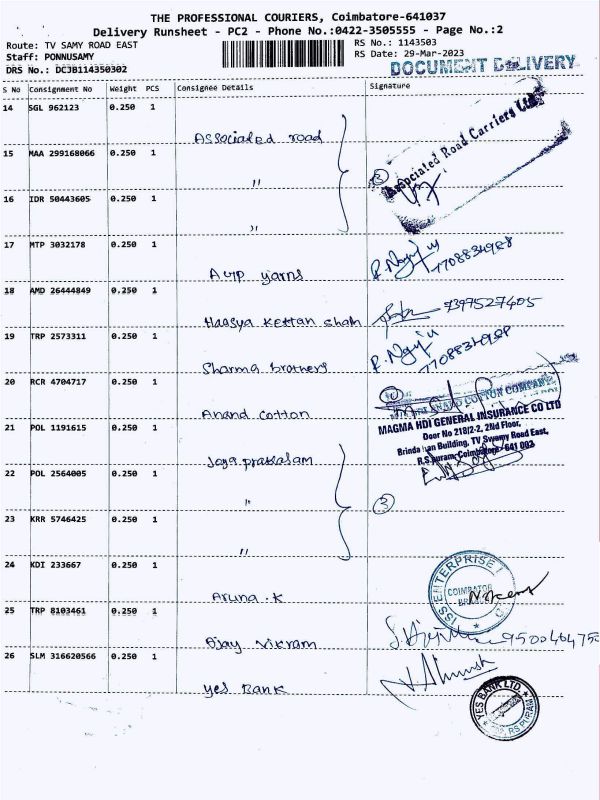 THE PROFESSIONAL COURIERS, Coimbatore-641037
Delivery Runsheet - PC2 - Phone No.:0422-3505555 - Page No.:2
Route: TV SAMY ROAD EAST
Staff: PONNUSAMY
DRS No.: DCJB114350302
RS No.: 1143503
RS Date: 29-Mar-2023
DOCUMENT DELIVERY
S No Consignment No Weight PCS Consignee Details Signature
14 SGL 962123 0.250 1
Associated road
Associated Road Carriers Ltd.
15 MAA 299168066 0.250 1
"
16 IDR 50443605 0.250 1
"
17 MTP 3032178 0.250 1
yarns
7708834988
18 AMD 26444849 0.250 1
Haasya Kettan shah
7397527405
19 TRP 2573311 0.250 1
Sharma brothers
20 RCR 4704717 0.250 1
Anand cotton
COTTON COMPANY
21 POL 1191615 0.250 1
MAGMA HDI GENERAL INSURANCE CO LTD
Door No 218/2-2, 2nd Floor,
Building, TV Swamy Road East,
R.S.puram, Coimbatore- 641 002
Joga prakasam
22 POL 2564005 0.250 1
"
3
23 KRR 5746425 0.250 1
"
24 KDI 233667 0.250 1
Aruna . K
ENTERPRISE
COIMBATOR
25 TRP 8103461 0.250 1
Ajay vikram
26 SLM 316620566 0.250 1
Yes Bank
YES BANK LTD.
RS PURAM